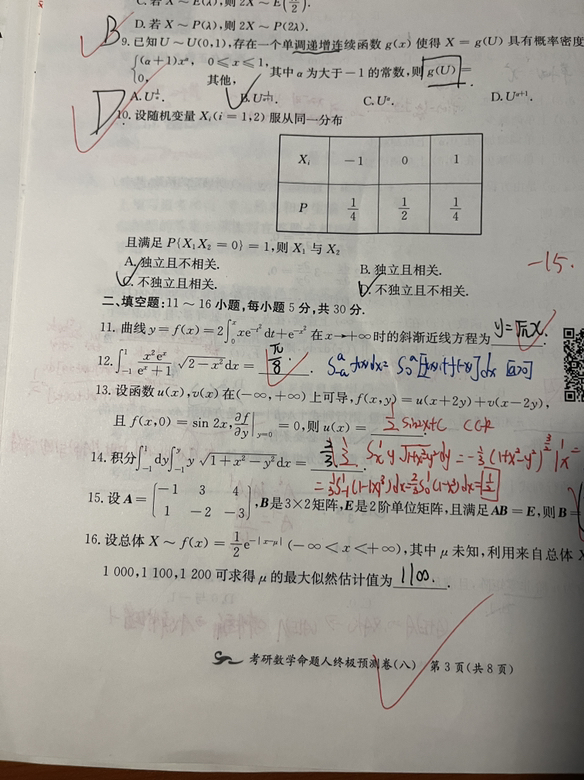 C. 若 X ~ E(λ), 则 2X ~ E(λ/2).
D. 若 X ~ P(λ), 则 2X ~ P(2λ).
B
9. 已知 U ~ U(0,1), 存在一个单调递增连续函数 g(x) 使得 X = g(U) 具有概率密度
{(α+1)x^α, 0≤x≤1,
0, 其他, 其中 α 为大于 −1 的常数, 则 g(U) =
A. U^{1/α}. B. U^{1/(α+1)}. C. U^α. D. U^{α+1}.
D
10. 设随机变量 X_i(i = 1,2) 服从同一分布
X_i −1 0 1
P 1/4 1/2 1/4
且满足 P{X₁X₂ = 0} = 1, 则 X₁ 与 X₂
A. 独立且不相关. B. 独立且相关.
C. 不独立且相关. D. 不独立且不相关.
−15.
二、填空题: 11 ~ 16 小题, 每小题 5 分, 共 30 分.
11. 曲线 y = f(x) = 2∫₀ˣ xe^{−t²}dt + e^{−x²} 在 x→+∞ 时的斜渐近线方程为 y=√π x.
12. ∫₋₁¹ x²eˣ/(eˣ+1) √(2−x²) dx = π/8.
∫₋ₐᵃ f(x)dx = ∫₀ᵃ [f(x)+f(−x)]dx [a>0]
13. 设函数 u(x), v(x) 在 (−∞,+∞) 上可导, f(x,y) = u(x+2y) + v(x−2y),
且 f(x,0) = sin 2x, ∂f/∂y|_{y=0} = 0, 则 u(x) = 1/2 sin2x+C C∈R
14. 积分∫₋₁¹dy∫₋₁ʸ y√(1+x²−y²)dx =
15. 设 A = (−1 3 4
1 −2 −3), B 是 3×2 矩阵, E 是 2 阶单位矩阵, 且满足 AB = E, 则 B =
16. 设总体 X ~ f(x) = 1/2 e^{−|x−μ|} (−∞ < x < +∞), 其中 μ 未知, 利用来自总体 X
1 000, 1 100, 1 200 可求得 μ 的最大似然估计值为 1100.
考研数学命题人终极预测卷(八) 第 3 页(共 8 页)